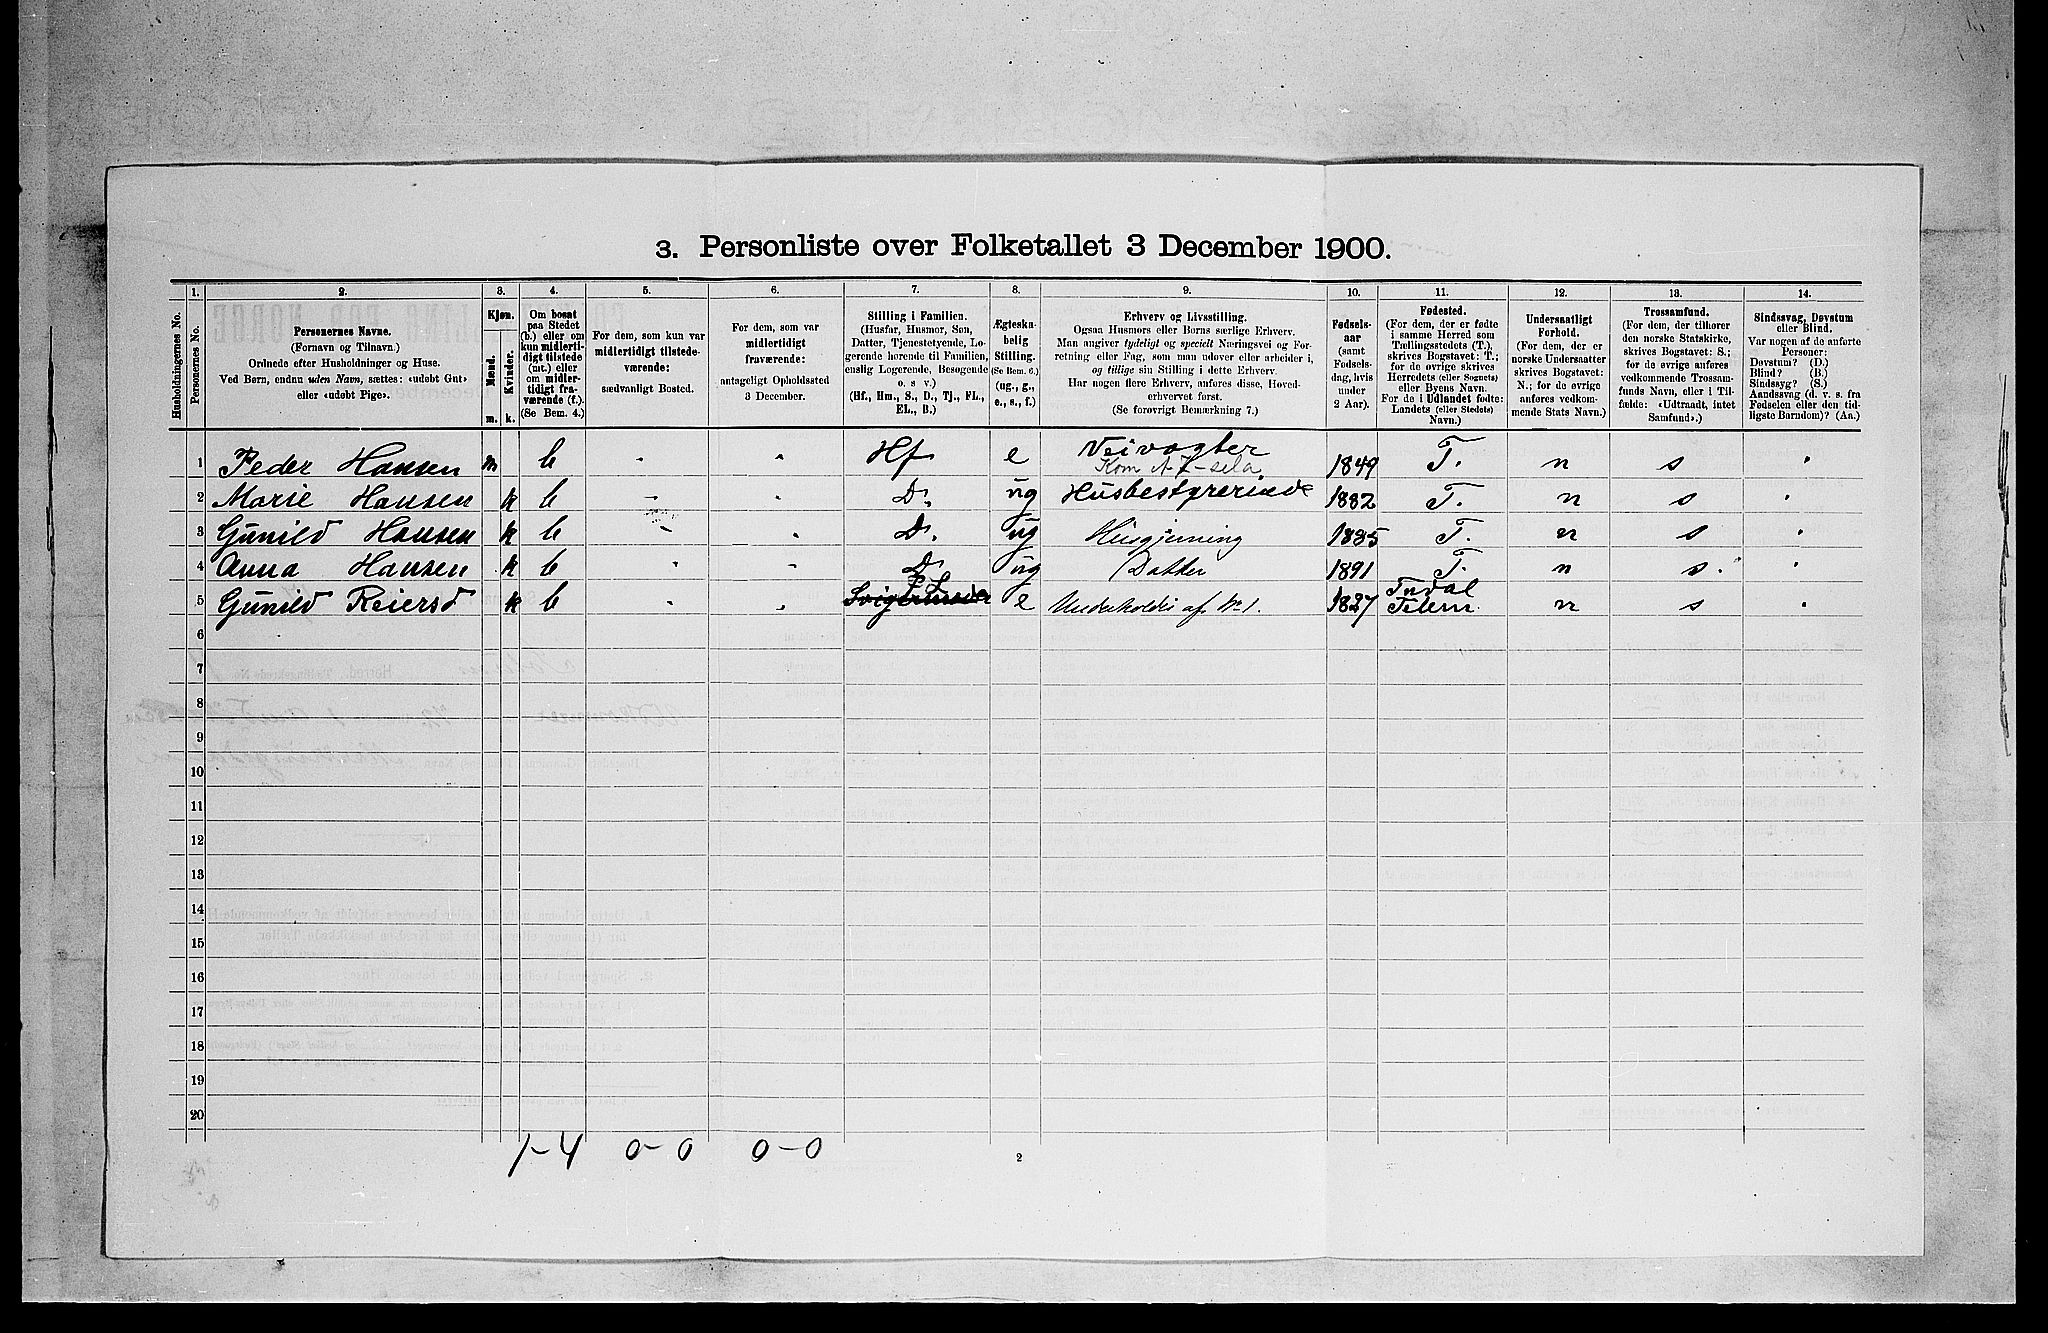 3. Personliste over Folketallet 3 December 1900.
1. 2. 3. 4. 5. 6. 7. 8. 9. 10. 11. 12. 13. 14.
Husholdningernes No.
Personernes No.
Personernes Navne.
(Fornavn og Tilnavn.)
Ordnede efter Husholdninger og Huse.
Ved Børn, endnu uden Navn, sættes: «udøbt Gut»
eller «udøbt Pige».
Kjøn.
Mænd.
Kvinder.
m. k.
Om bosat
paa Stedet
(b.) eller om
kun midlerti-
digt tilstede
(mt.) eller
om midler-
tidigt fra-
værende (f.).
(Se Bem. 4.)
For dem, som kun var
midlertidigt tilstede-
værende:
sædvanligt Bosted.
For dem, som var
midlertidigt
fraværende:
antageligt Opholdssted
3 December.
Stilling i Familien.
(Husfar, Husmor, Søn,
Datter, Tjenestetyende, Lo-
gerende hørende til Familien,
enslig Logerende, Besøgende
o. s v.)
(Hf., Hm., S., D., Tj., FL.,
EL., B.)
Ægteska-
belig
Stilling.
(Se Bem. 6.)
(ug., g.,
e., s., f.)
Erhverv og Livsstilling.
Ogsaa Husmors eller Børns særlige Erhverv.
Man angiver tydeligt og specielt Næringsvei og For-
retning eller Fag, som man udøver eller arbeider i,
og tillige sin Stilling i dette Erhverv.
Har nogen flere Erhverv, anføres disse, Hoved-
erhvervet først.
(Se forøvrigt Bemærkning 7.)
Fødsels-
aar
(samt
Fødsels-
dag, hvis
under
2 Aar).
Fødested.
(For dem, der er fødte
i samme Herred som
Tællingsstedets (T.),
skrives Bogstavet: T.;
for de øvrige skrives
Herredets (eller Sognets)
eller Byens Navn.
For de i Udlandet fødte:
Landets (eller Stedets)
Navn.)
Undersaatligt
Forhold.
(For dem, der er
norske Undersaatter
skrives Bogstavet:
N.; for de øvrige
anføres vedkom-
mende Stats Navn.)
Trossamfund.
(For dem, der tilhører
den norske Statskirke,
skrives Bogstavet: S.;
for de øvrige anføres
vedkommende Trossam-
funds Navn, eller i Til-
fælde: «Udtraadt, intet
Samfund».)
Sindssvag, Døvstum
eller Blind.
Var nogen af de anførte
Personer:
Døvstum? (D.)
Blind? (B.)
Sindssyg? (S.)
Aandssvag (d. v. s. fra
Fødselen eller den tid-
ligste Barndom)? (Aa.)
1 Peder Hansen m b - - Hf e Veivogter 1849 T. n s -
2 Marie Hansen k b - - D. ug Husbestyrerinde 1882 T. n s -
3 Gunild Hansen k b - - D. ug Husgjerning 1885 T. n s -
4 Anna Hansen k b - - D ug Datter 1891 T. n s. -
5 Gunild Reiersd k b - - Svigermoder e Underholdes af No 1. 1827 Telem. n s -
6
7
8
9
10
11
12
13
14
15
16
17
18
19
20
1-4 0-0 0-0
2